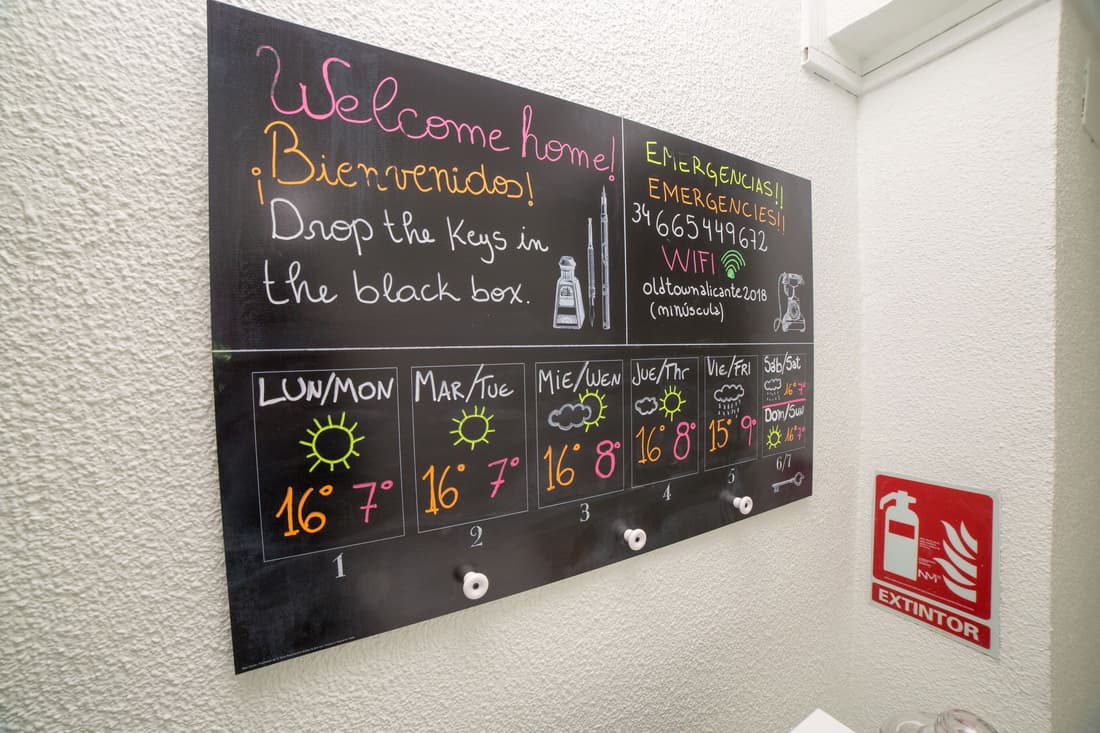 Welcome home!
¡Bienvenidos!
Drop the Keys in
the black box.
EMERGENCIAS!!
EMERGENCIES!!
34 665449672
WIFI
oldtownalicante2018
(minúscula)
LUN/MON
16° 7°
1
MAR/TUE
16° 7°
2
MIE/WEN
16° 8°
3
Jue/Thr
16° 8°
4
Vie/FRI
15° 9°
5
Sáb/Sat
16° 7°
Dom/Sun
16° 7°
6/7
EXTINTOR